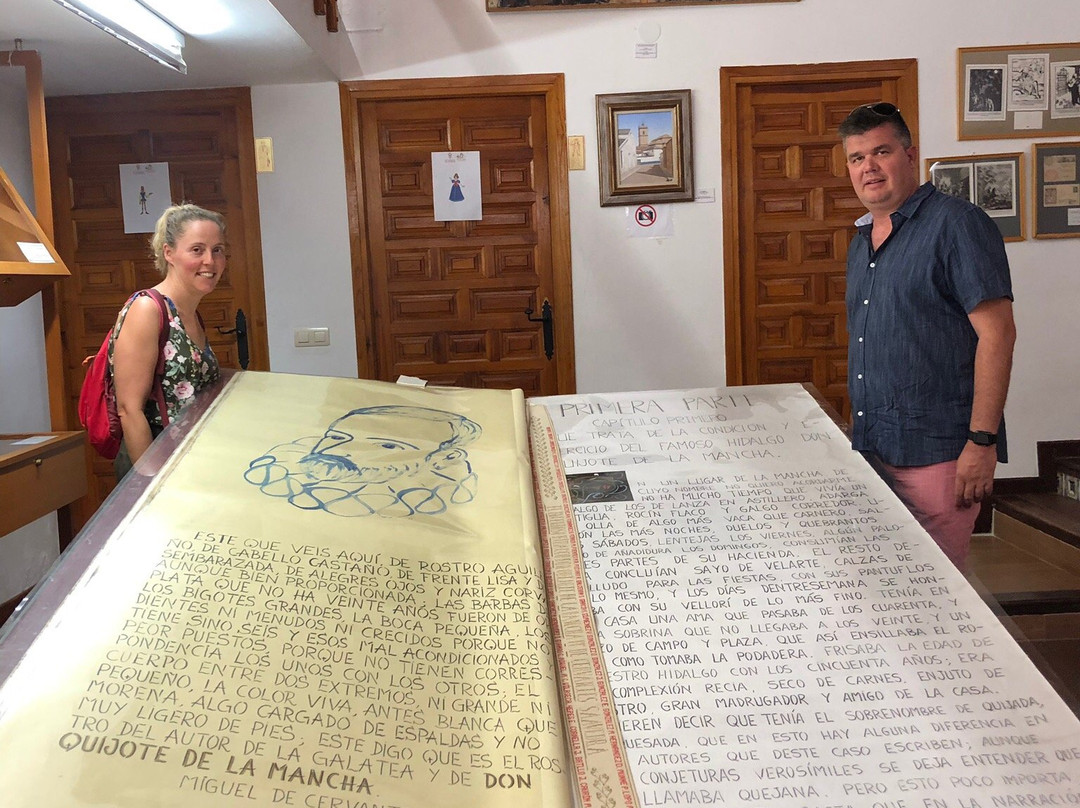 ESTE QUE VEIS AQUÍ DE ROSTRO AGUIL
NO, DE CABELLO CASTAÑO DE FRENTE LISA Y D
SEMBARAZADA, DE ALEGRES OJOS Y NARIZ CORV
AUNQUE BIEN PROPORCIONADA, LAS BARBAS
PLATA QUE NO HA VEINTE AÑOS FUERON DE O
LOS BIGOTES GRANDES, LA BOCA PEQUEÑA, LOS
DIENTES NI MENUDOS NI CRECIDOS PORQUE NO
TIENE SINO SEIS Y ESOS MAL ACONDICIONADOS
PEOR PUESTOS, PORQUE NO TIENEN CORRES-
PONDENCIA LOS UNOS CON LOS OTROS; EL
CUERPO ENTRE DOS EXTREMOS, NI GRANDE NI
PEQUEÑO, LA COLOR VIVA, ANTES BLANCA QUE
MORENA, ALGO CARGADO DE ESPALDAS Y NO
MUY LIGERO DE PIES, ESTE DIGO QUE ES EL ROS
TRO DEL AUTOR DE LA GALATEA Y DE DON
QUIJOTE DE LA MANCHA.
MIGUEL DE CERVANT
PRIMERA PARTE
CAPÍTULO PRIMERO
UE TRATA DE LA CONDICIÓN Y E
ERCICIO DEL FAMOSO HIDALGO DON
QUIJOTE DE LA MANCHA.
N UN LUGAR DE LA MANCHA, DE
CUYO NOMBRE NO QUIERO ACORDARME,
NO HA MUCHO TIEMPO QUE VIVÍA UN
ALGO DE LOS DE LANZA EN ASTILLERO, ADARGA
TIGUA, ROCÍN FLACO Y GALGO CORREDOR. U-
OLLA DE ALGO MÁS VACA QUE CARNERO, SAL-
ÓN LAS MÁS NOCHES, DUELOS Y QUEBRANTOS
SÁBADOS, LENTEJAS LOS VIERNES, ALGÚN PALO-
O DE AÑADIDURA LOS DOMINGOS, CONSUMÍAN LAS
ES PARTES DE SU HACIENDA. EL RESTO DE-
A CONCLUÍAN SAYO DE VELARTE, CALZAS DE
LLUDO PARA LAS FIESTAS, CON SUS PANTUFLOS
LO MESMO, Y LOS DÍAS DENTRESEMANA SE HON-
BA CON SU VELLORÍ DE LO MÁS FINO. TENÍA EN
CASA UNA AMA QUE PASABA DE LOS CUARENTA, Y
SOBRINA QUE NO LLEGABA A LOS VEINTE, Y UN
O DE CAMPO Y PLAZA, QUE ASÍ ENSILLABA EL RO-
COMO TOMABA LA PODADERA. FRISABA LA EDAD DE
STRO HIDALGO CON LOS CINCUENTA AÑOS; ERA
COMPLEXIÓN RECIA, SECO DE CARNES, ENJUTO DE
TRO, GRAN MADRUGADOR Y AMIGO DE LA CASA.
IEREN DECIR QUE TENÍA EL SOBRENOMBRE DE QUIJADA,
UESADA, QUE EN ESTO HAY ALGUNA DIFERENCIA EN
AUTORES QUE DESTE CASO ESCRIBEN; AUNQUE
CONJETURAS VEROSÍMILES SE DEJA ENTENDER QUE
LLAMABA QUEJANA. PERO ESTO POCO IMPORTA
LA NARRACIÓN